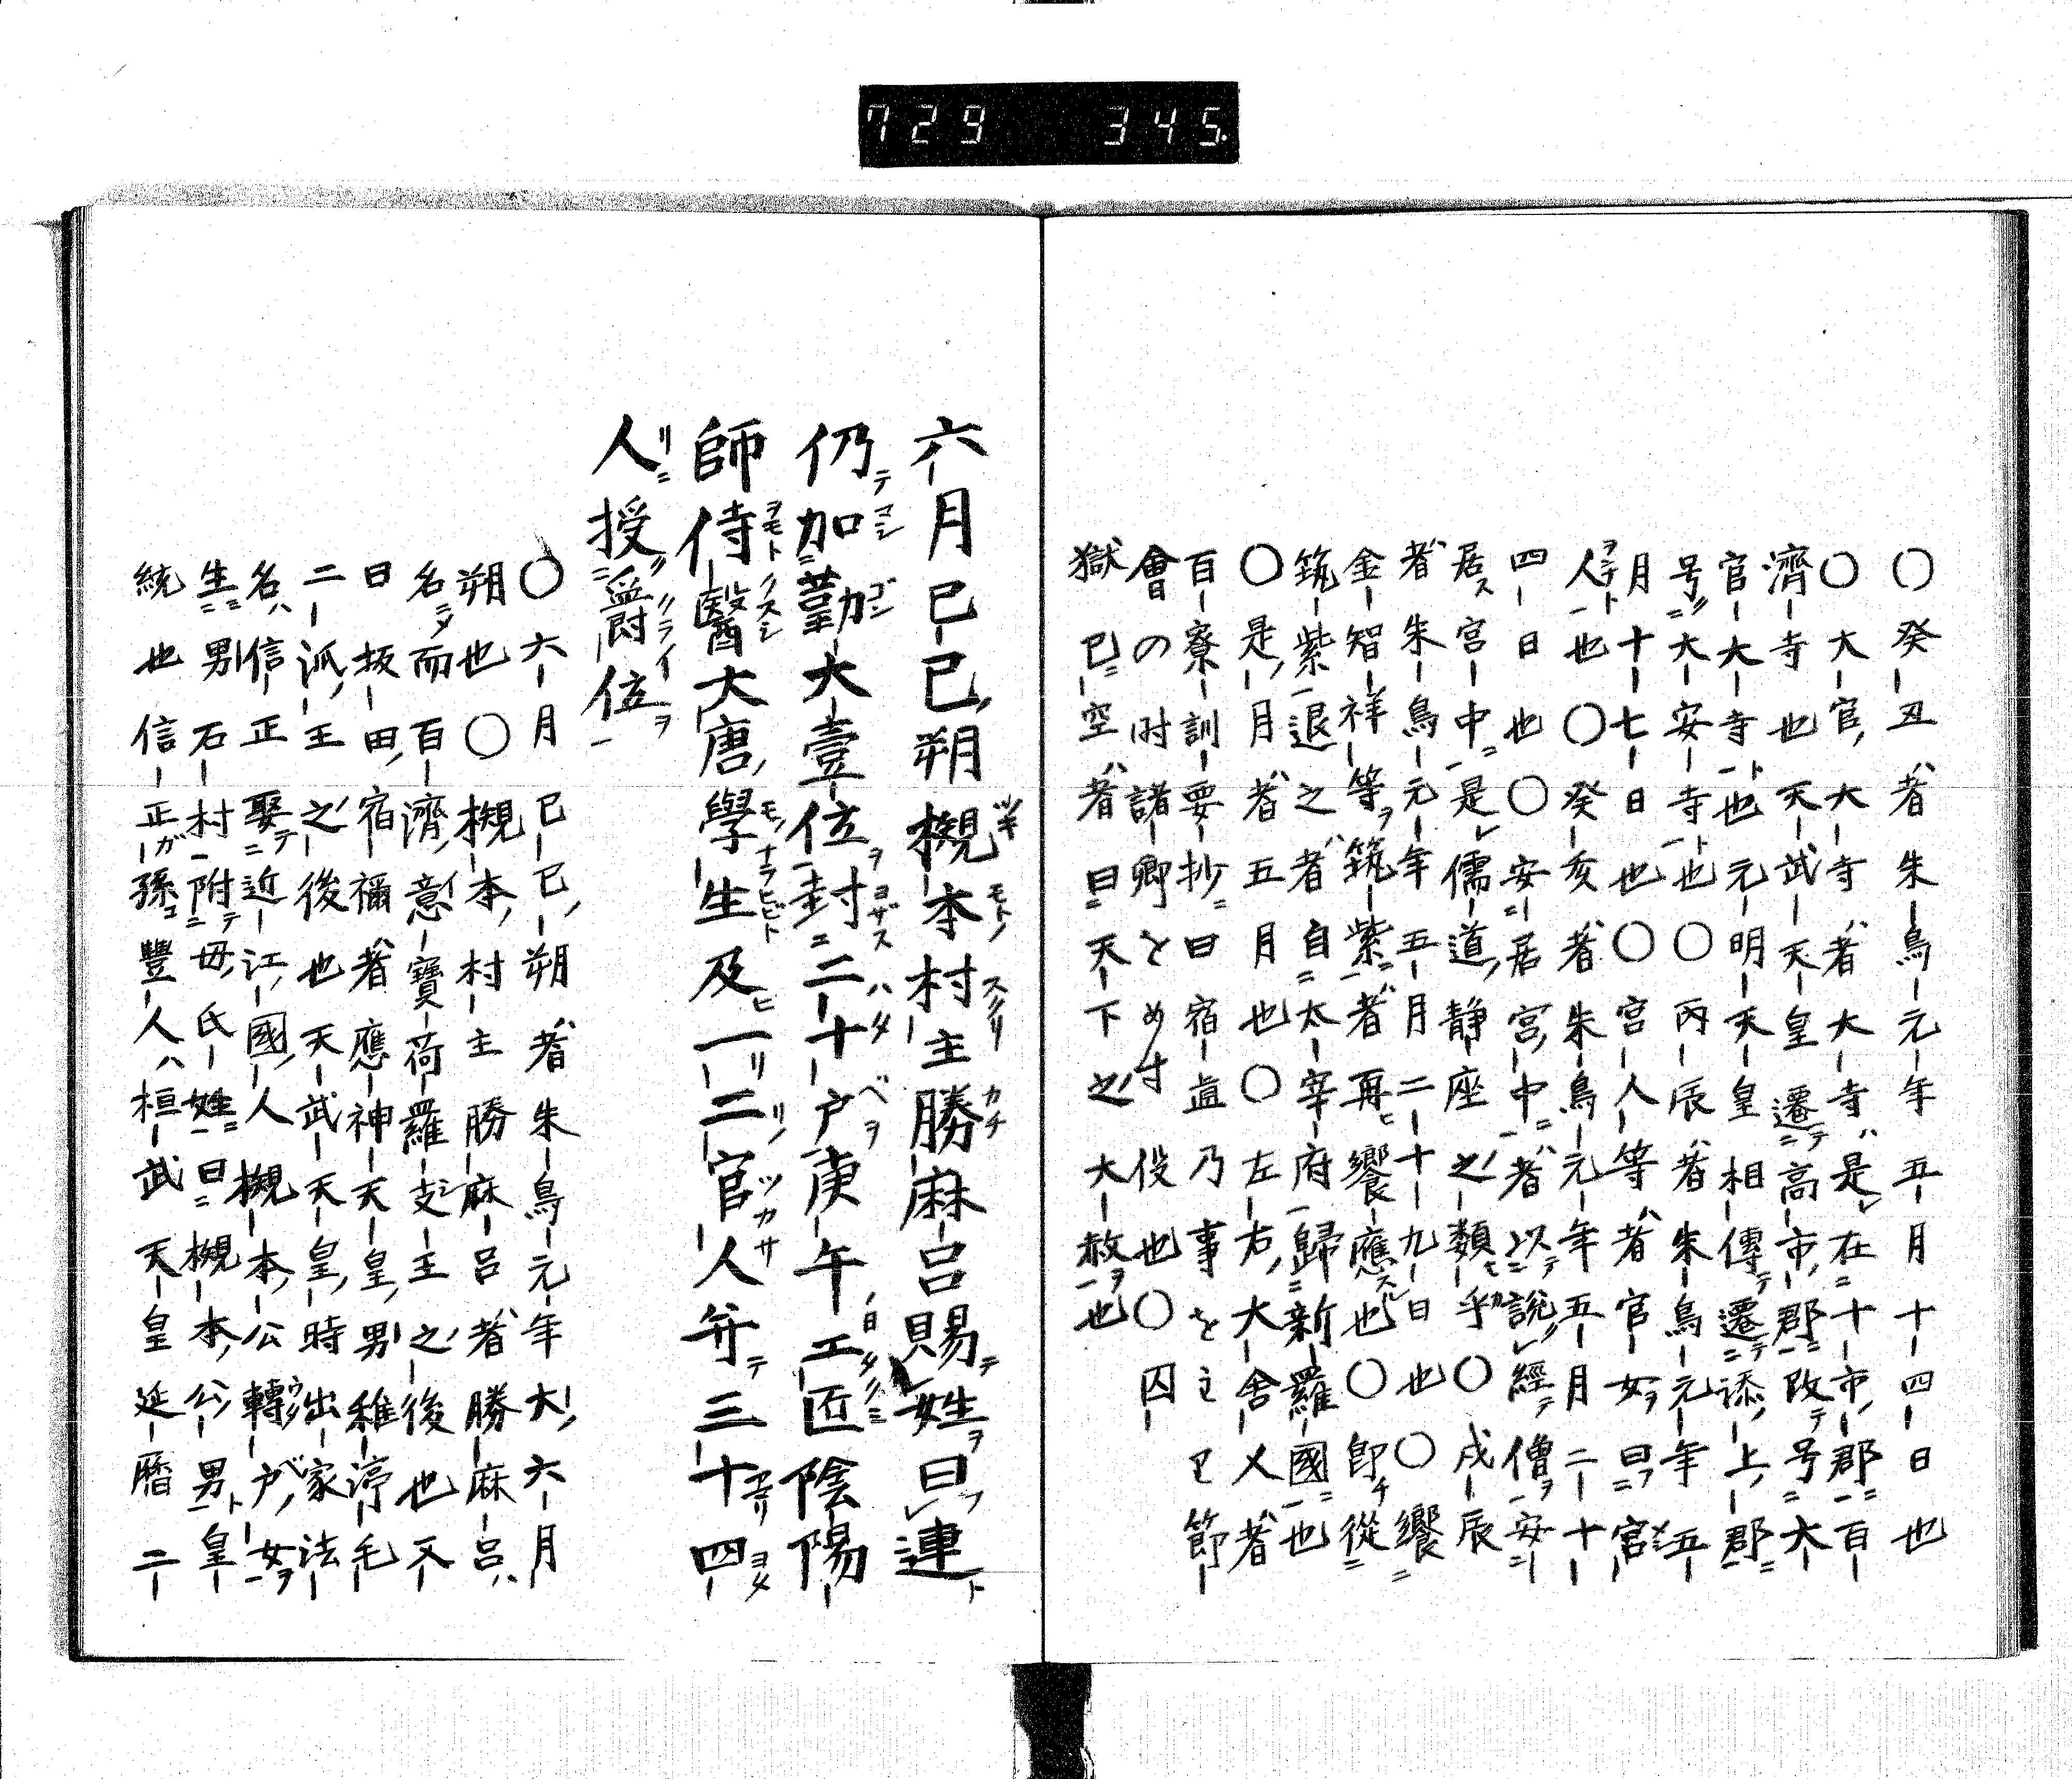 729 345
〇癸丑者朱鳥元年五月十四日也
〇大官大寺者大寺是在十市郡百
濟寺也天武天皇遷高市郡改号大
官大寺也元明天皇相傳遷添上郡
号大安寺也〇丙辰者朱鳥元年五
月十七日也〇宮人等者官女曰宮
人也〇癸亥者朱鳥元年五月二十
四日也〇安居宮中者以説經僧安
居宮中是儒道静座之類乎〇戌辰
者朱鳥元年五月二十九日也〇饗
金智祥等筑紫者再饗應也〇即從
筑紫退之者自太宰府歸新羅國也
〇是月者五月也〇左右大舎人者
百寮訓要抄曰宿直乃事を主と節
會の時諸卿とめす役也〇囚
獄已空者曰天下之大赦也
六月己巳朔槻本村主勝麻呂賜姓曰連
仍加勤大壹位封二十戸庚午工匠陰陽
師侍醫大唐學生及一二官人并三十四
人授爵位
〇六月己巳朔者朱鳥元年大六月
朔也〇槻本村主勝麻呂者勝麻呂
名而百濟意寶荷羅支王之後也又
曰坂田宿禰者應神天皇男稚渟毛
二派王之後也天武天皇時出家法
名信正娶近江國人槻本公轉戸女
生男石村附母氏姓曰槻本公男皇
統也信正孫豐人桓武天皇延暦二